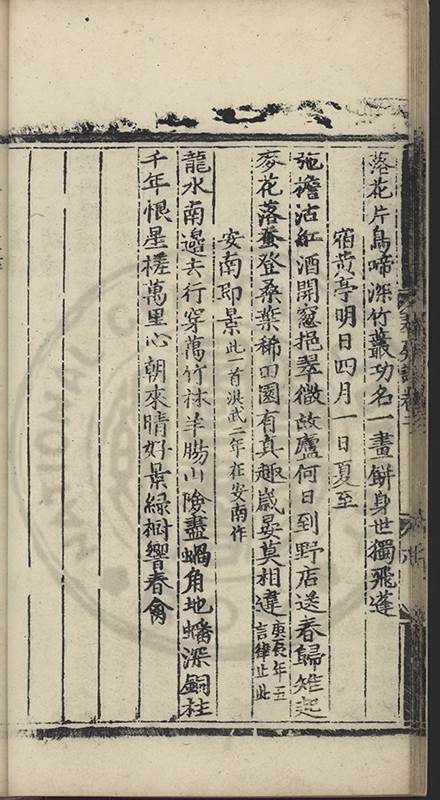 落花片鳥啼深竹叢功名一畫餅身世獨飛蓬
宿黃亭明日四月一日夏至
拖襜沽紅酒開窓挹翠微故廬何日到野店送春歸雉起
麥花落蚕登桑葉稀田園有真趣歲晏莫相違庚辰年五言律止此
安南即景此一首洪武二年在安南作
龍水南邊去行穿萬竹林羊腸山險盡蝸角地蟠深銅柱
千年恨星槎萬里心朝來晴好景緑樹響春禽